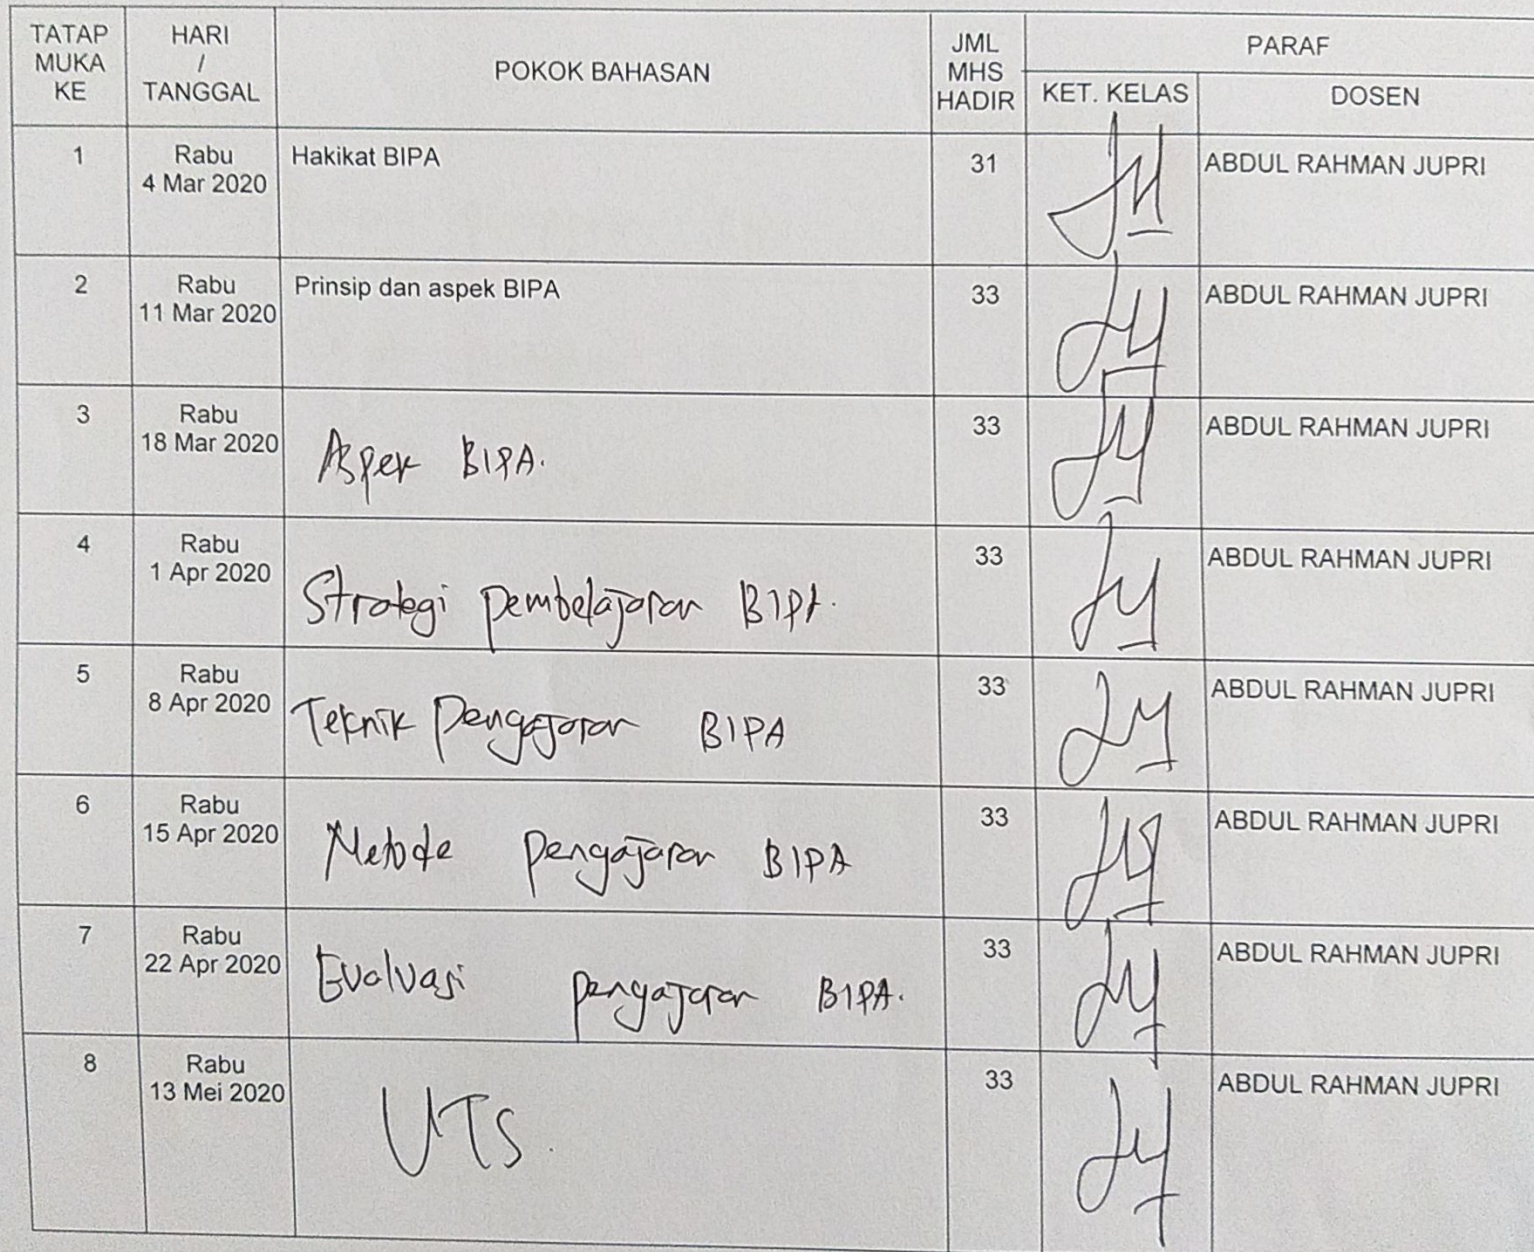 TATAP
MUKA
KE
HARI
/
TANGGAL
POKOK BAHASAN
JML
MHS
HADIR
PARAF
KET. KELAS
DOSEN
1
Rabu
4 Mar 2020
Hakikat BIPA
31
ABDUL RAHMAN JUPRI
2
Rabu
11 Mar 2020
Prinsip dan aspek BIPA
33
ABDUL RAHMAN JUPRI
3
Rabu
18 Mar 2020
Aspek BIPA.
33
ABDUL RAHMAN JUPRI
4
Rabu
1 Apr 2020
Strategi pembelajaran BIPA.
33
ABDUL RAHMAN JUPRI
5
Rabu
8 Apr 2020
Teknik Pengajaran BIPA
33
ABDUL RAHMAN JUPRI
6
Rabu
15 Apr 2020
Metode Pengajaran BIPA
33
ABDUL RAHMAN JUPRI
7
Rabu
22 Apr 2020
Evaluasi pengajaran BIPA.
33
ABDUL RAHMAN JUPRI
8
Rabu
13 Mei 2020
UTS.
33
ABDUL RAHMAN JUPRI